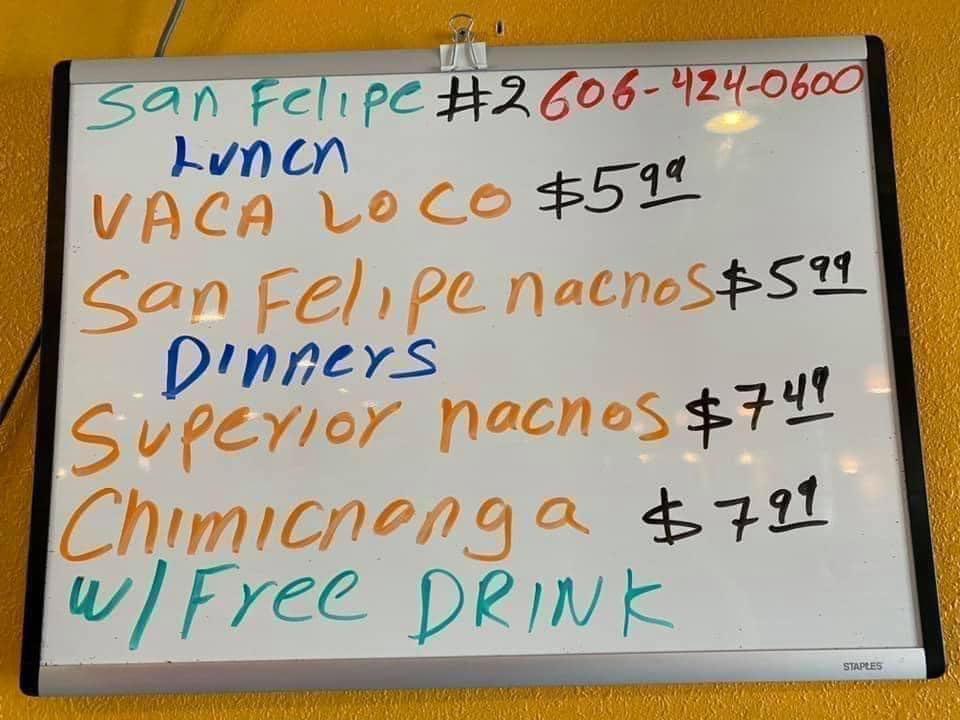 San Felipe #2 606-424-0600
Lunch
VACA LOCO $5.99
San Felipe nachos $5.99
Dinners
Superior nachos $7.49
Chimichanga $7.99
w/ Free DRINK
STAPLES